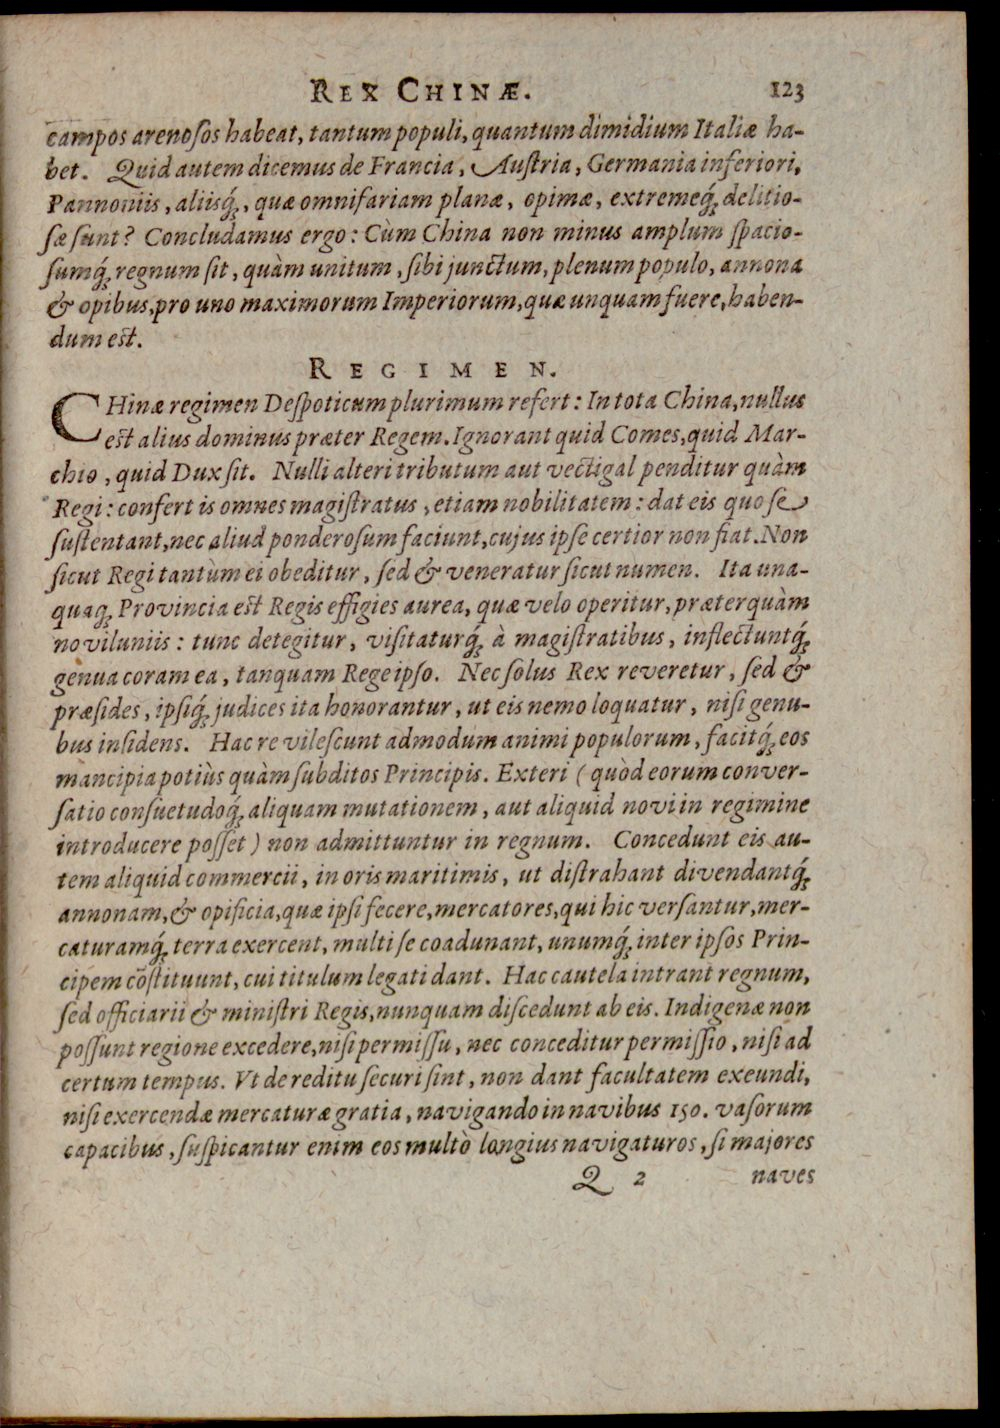 REX CHINÆ. 123
campos arenosos habeat, tantum populi, quantum dimidium Italiæ ha-
bet. Quid autem dicemus de Francia, Austria, Germania inferiori,
Pannoniis, aliisq́;, quæ omnifariam planæ, opimæ, extremeq́; delitio-
sæ sunt? Concludamus ergo: Cùm China non minus amplum spacio-
sumq́; regnum sit, quàm unitum, sibi junctum, plenum populo, annona
& opibus, pro uno maximorum Imperiorum, quæ unquam fuere, haben-
dum est.
REGIMEN.
CHinæ regimen Despoticum plurimum refert: In tota China, nullus
est alius dominus præter Regem. Ignorant quid Comes, quid Mar-
chio, quid Dux sit. Nulli alteri tributum aut vectigal penditur quàm
Regi: confert is omnes magistratus, etiam nobilitatem: dat eis quo se
sustentant, nec aliud ponderosum faciunt, cujus ipse certior non fiat. Non
sicut Regi tantùm ei obeditur, sed & veneratur sicut numen. Ita una-
quaq; Provincia est Regis effigies aurea, quæ velo operitur, præterquàm
noviluniis: tunc detegitur, visitaturq́; à magistratibus, inflectuntq́;
genua coram ea, tanquam Rege ipso. Nec solus Rex reveretur, sed &
præsides, ipsiq́; judices ita honorantur, ut eis nemo loquatur, nisi genu-
bus insidens. Hac re vilescunt admodum animi populorum, facitq́; eos
mancipia potiùs quàm subditos Principis. Exteri (quòd eorum conver-
satio consuetudoq́; aliquam mutationem, aut aliquid novi in regimine
introducere posset) non admittuntur in regnum. Concedunt eis au-
tem aliquid commercii, in oris maritimis, ut distrahant divendantq́;
annonam, & opificia, quæ ipsi fecere, mercatores, qui hic versantur, mer-
caturamq́; terra exercent, multi se coadunant, unumq́; inter ipsos Prin-
cipem cōstituunt, cui titulum legati dant. Hac cautela intrant regnum,
sed officiarii & ministri Regis, nunquam discedunt ab eis. Indigenæ non
possunt regione excedere, nisi permissu, nec conceditur permissio, nisi ad
certum tempus. Vt de reditu securi sint, non dant facultatem exeundi,
nisi exercendæ mercaturæ gratia, navigando in navibus 150. vasorum
capacibus, suspicantur enim eos multò longius navigaturos, si majores
Q 2 naves